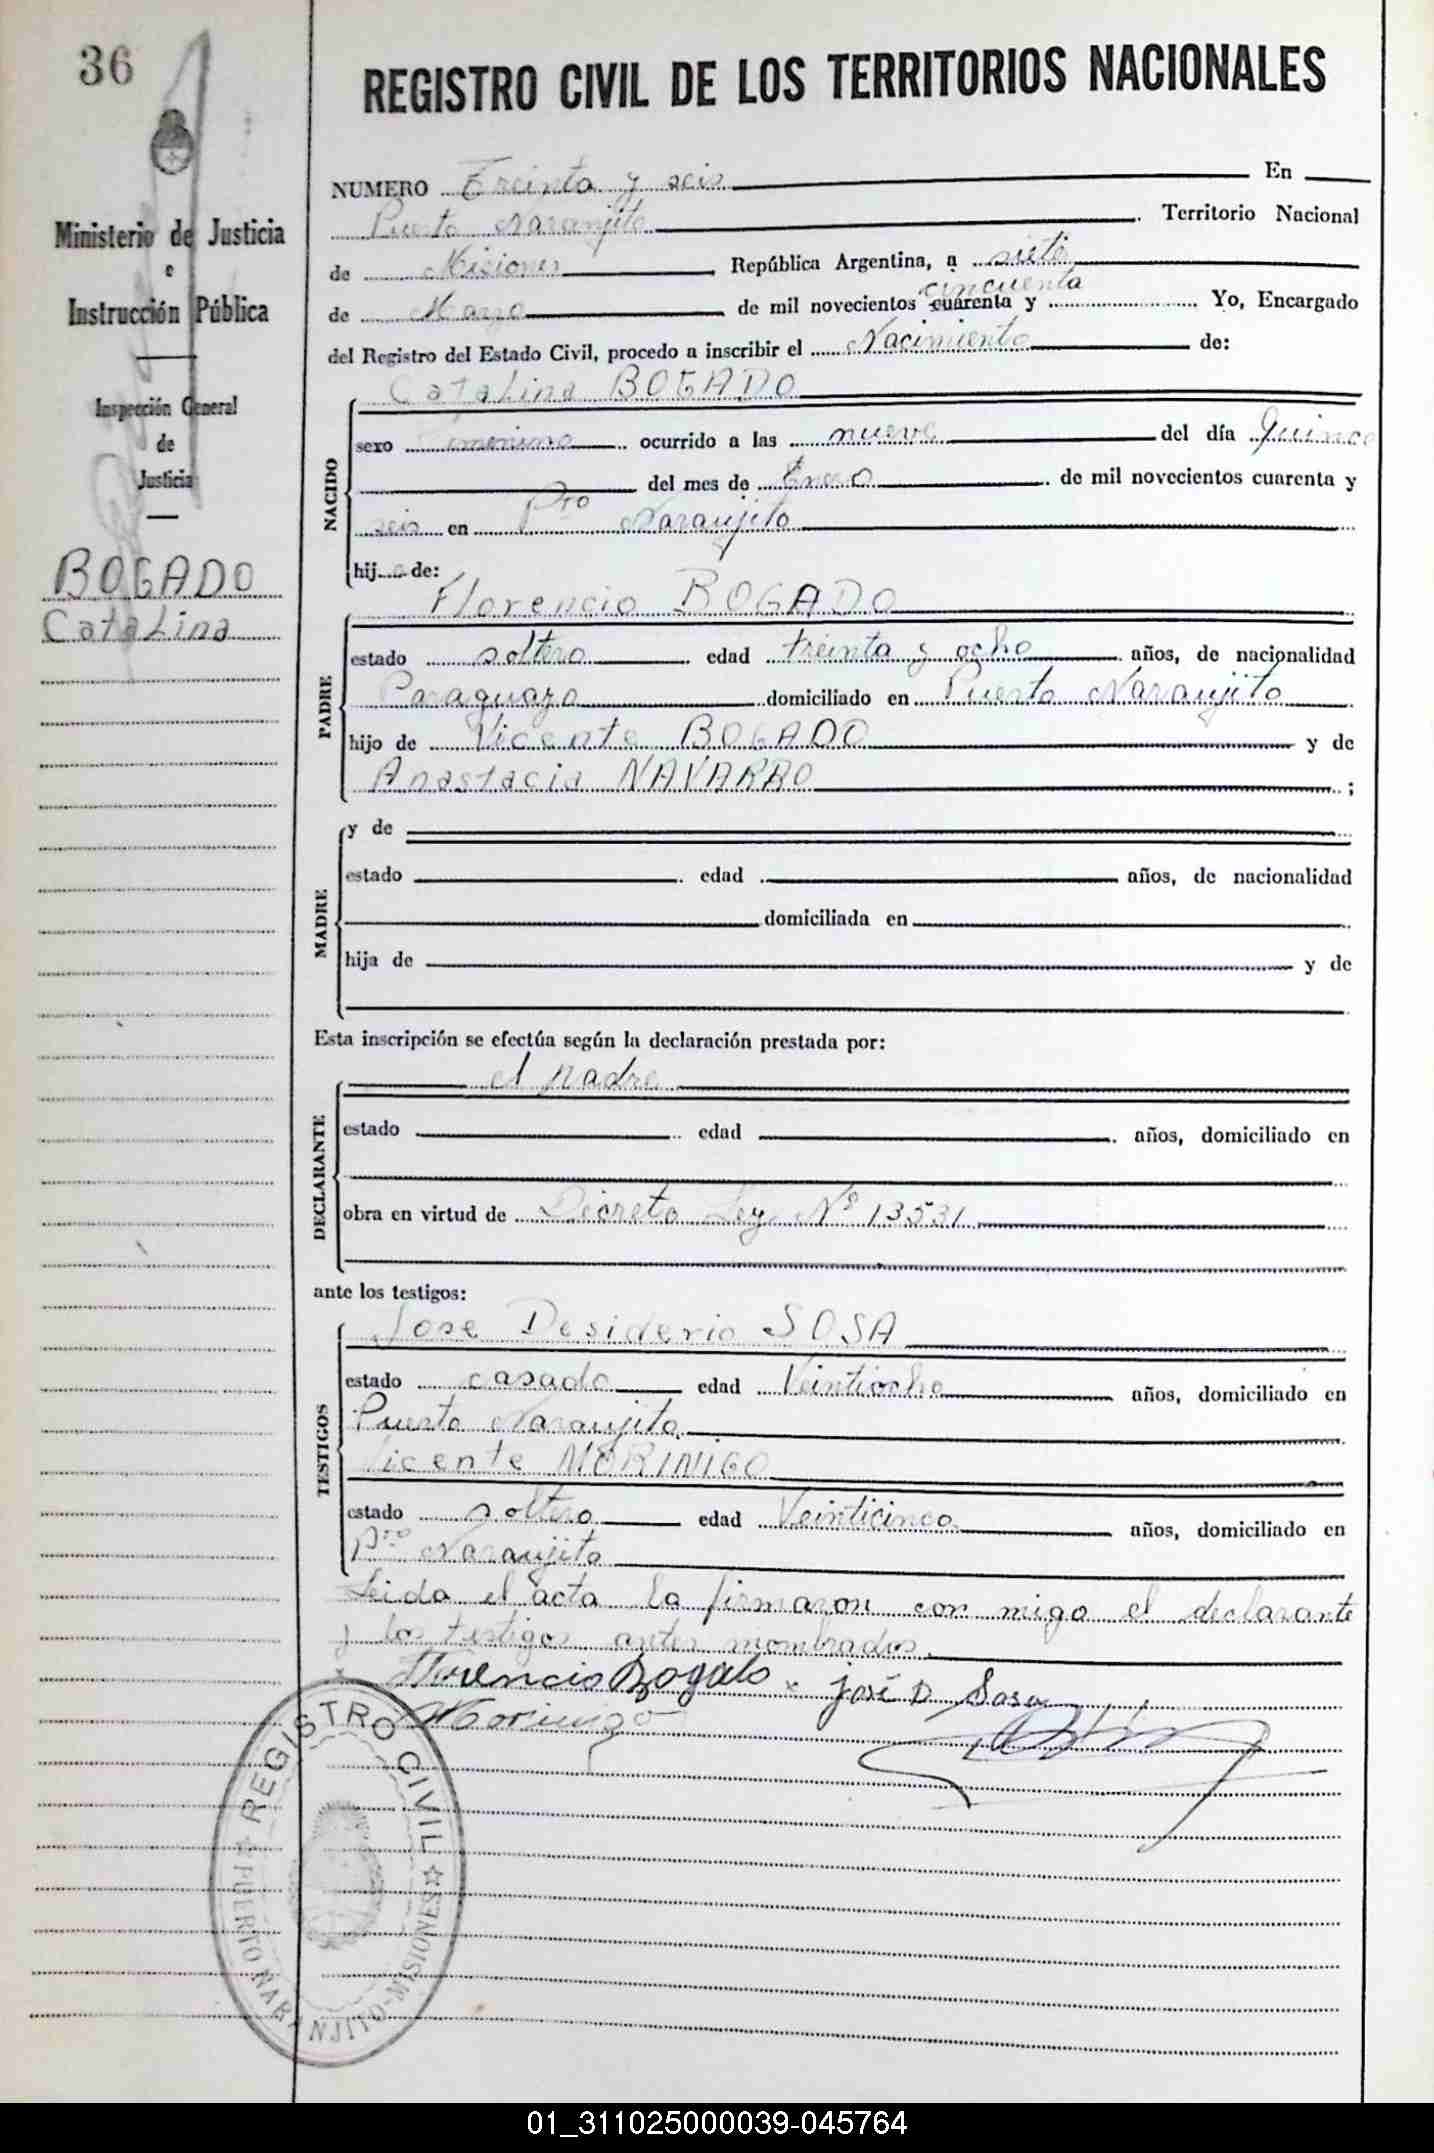 36
REGISTRO CIVIL DE LOS TERRITORIOS NACIONALES
Ministerio de Justicia
e
Instrucción Pública
Inspección General
de
Justicia
BOGADO
Catalina
NUMERO Treinta y seis En
Puerto Naranjito Territorio Nacional
de Misiones República Argentina, a siete
cincuenta
de Marzo de mil novecientos cuarenta y Yo, Encargado
del Registro del Estado Civil, procedo a inscribir el Nacimiento de:
NACIDO
Catalina BOGADO
sexo femenino ocurrido a las nueve del día Quince
del mes de Enero de mil novecientos cuarenta y
seis en Pto Naranjito
hija de:
PADRE
Florencio BOGADO
estado soltero edad treinta y ocho años, de nacionalidad
Paraguayo domiciliado en Puerto Naranjito
hijo de Vicente BOGADO y de
Anastacia NAVARRO ;
MADRE
y de
estado edad años, de nacionalidad
domiciliada en
hija de y de
Esta inscripción se efectúa según la declaración prestada por:
DECLARANTE
el padre
estado edad años, domiciliado en
obra en virtud de Decreto Ley Nº 13531
ante los testigos:
TESTIGOS
Jose Desiderio SOSA
estado casado edad Veintiocho años, domiciliado en
Puerto Naranjito
Vicente MORINIGO
estado soltero edad Veinticinco años, domiciliado en
Pto Naranjito
Leida el acta la firmaron con migo el declarante
y los testigos antes nombrados.
x Florencio Bogado x José D Sosa
Morinigo
REGISTRO CIVIL
PUERTO NARANJITO-MISIONES
01_311025000039-045764